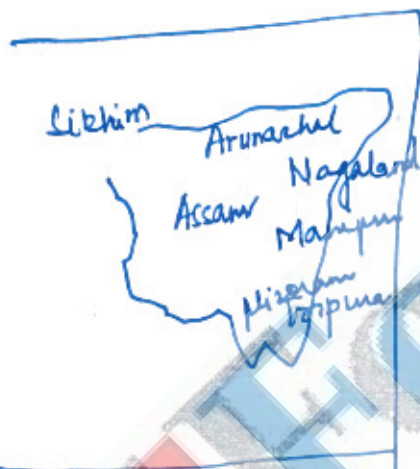 Sikhim
Arunachal
Nagaland
Assam
Manipur
Mizoram
Tripura